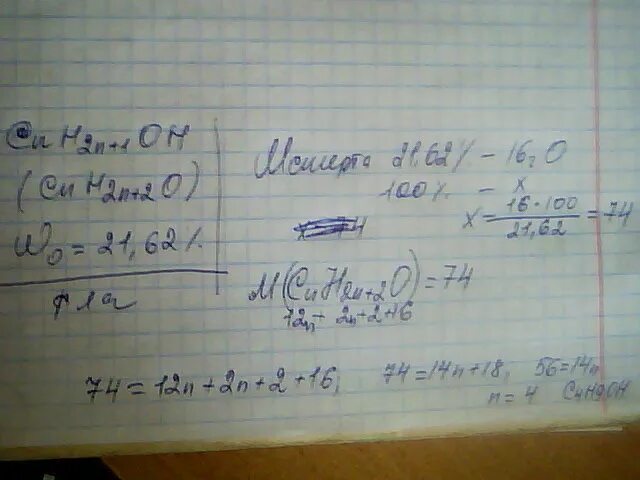 CnH2n+1OH
(CnH2n+2O)
Wo = 21,62%
ф-ла
Мспирта 21,62% – 16г О
100% – х
х = 16·100 / 21,62 = 74
М(CnH2n+2O) = 74
12n + 2n+2+16
74 = 12n+2n+2+16, 74=14n+18, 56=14n
n = 4 C4H9OH